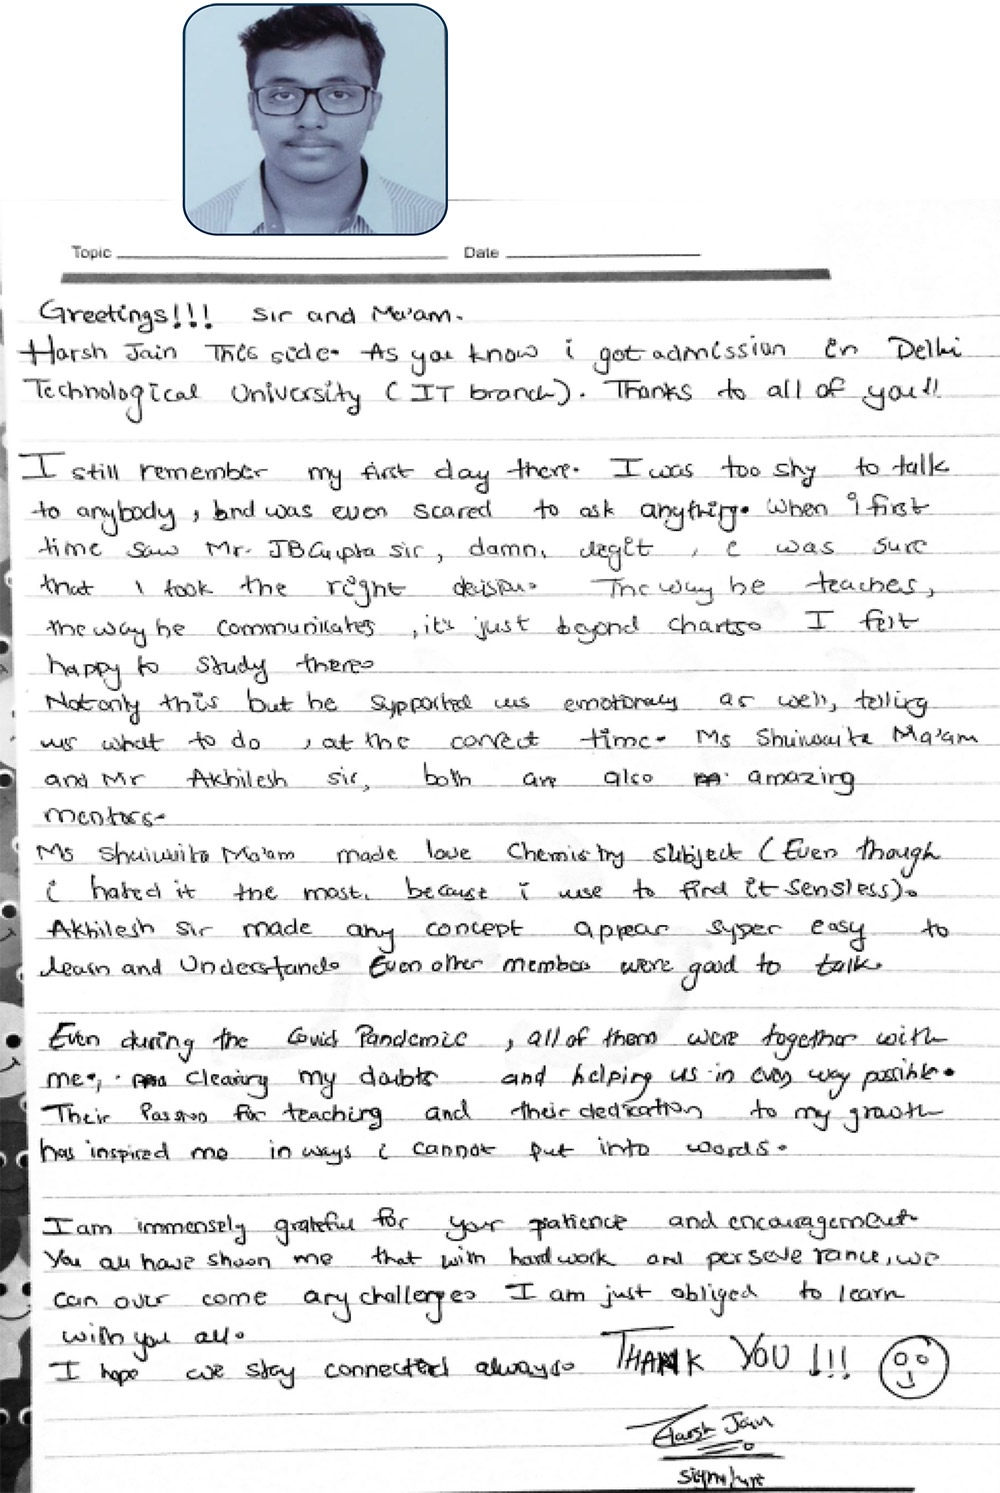 Topic Date
Greetings!!! Sir and Ma'am.
Harsh Jain This side. As you know i got admission in Delhi
Technological University (IT branch). Thanks to all of you!!
I still remember my first day there. I was too shy to talk
to anybody, and was even scared to ask anything. When I first
time saw Mr. JBGupta sir, damn, legit, i was sure
that I took the right decision. The way he teaches,
the way he communicates, it's just beyond charts. I felt
happy to study there.
Not only this but he supported us emotionaly as well, telling
us what to do, at the correct time. Ms Ma'am
and Mr Akhilesh sir, both are also amazing
mentors.
Ms Ma'am made love Chemistry subject (Even though
i hated it the most, because i use to find it sensless).
Akhilesh Sir made any concept appear super easy to
learn and Understand. Even other members were good to talk.
Even during the Covid Pandemic, all of them were together with
me, clearing my doubts and helping us in every way possible.
Their Passion for teaching and their dedication to my growth
has inspired me in ways i cannot put into words.
I am immensely grateful for your patience and encouragement.
You all have shown me that with hard work and perseverance, we
can over come any challenge. I am just obliged to learn
with you all.
I hope we stay connected always. THANK YOU !!!
Harsh Jain
Signature